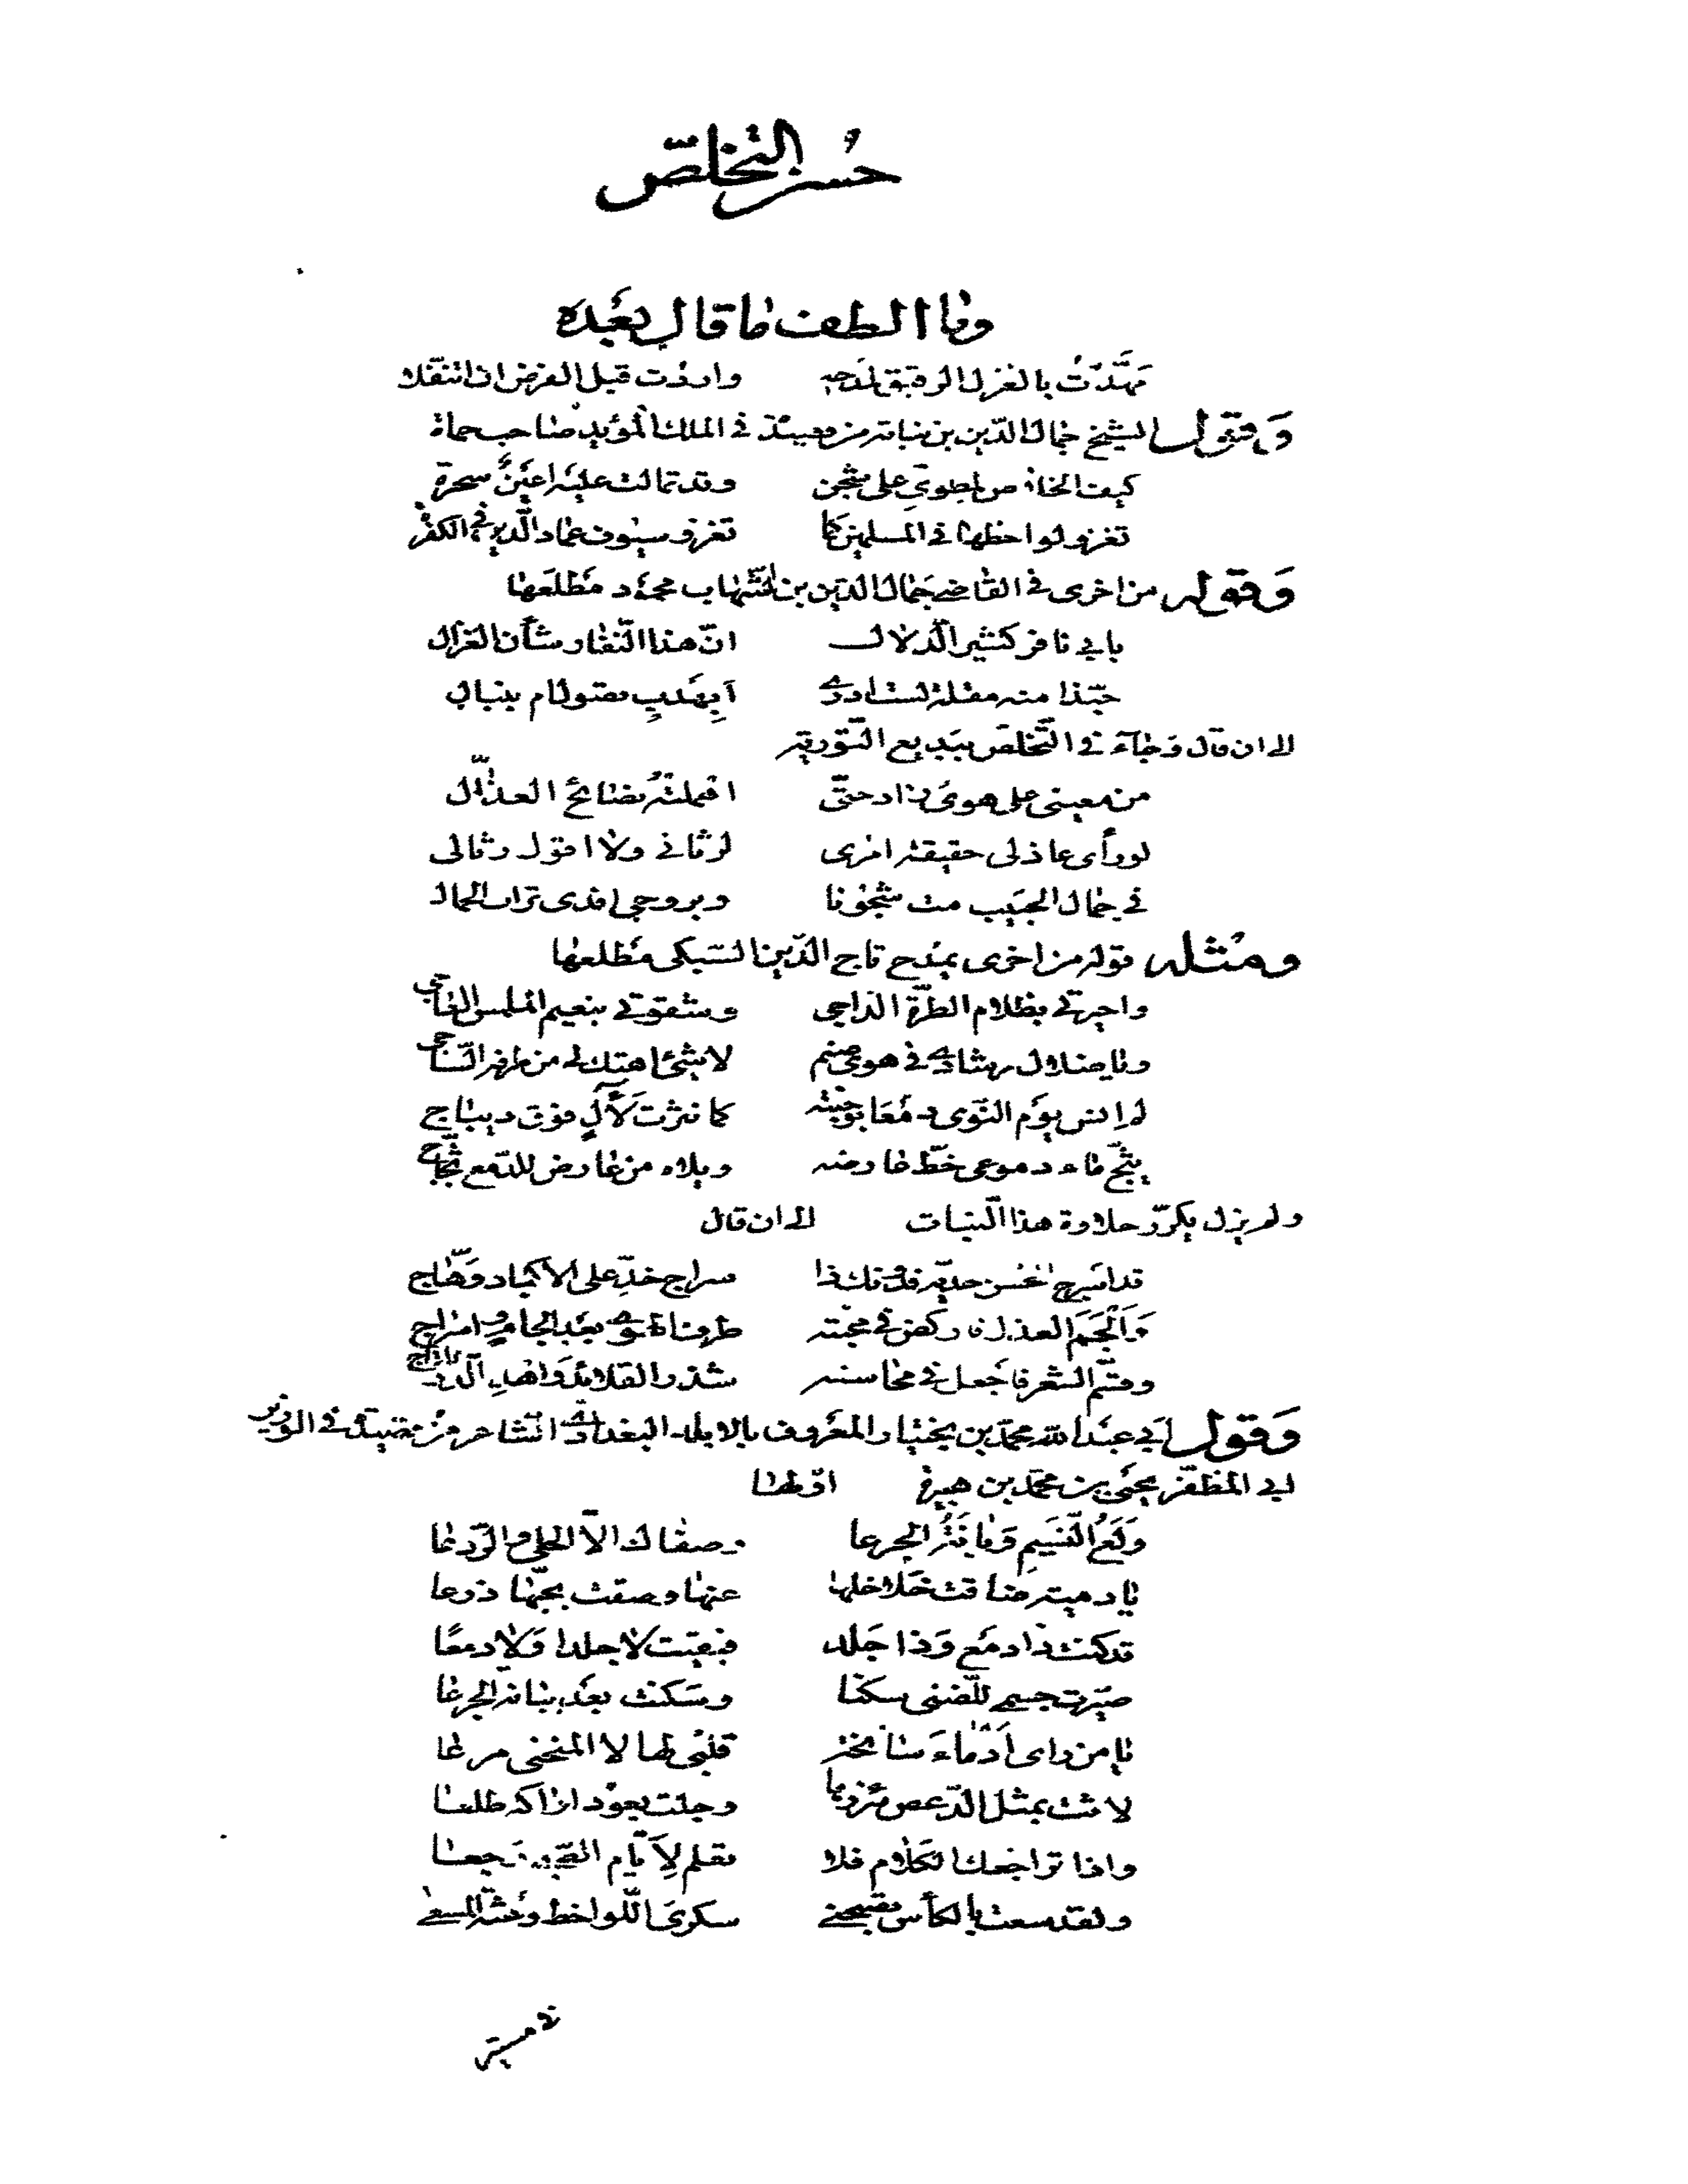 حسن التخلص
وما الطف ما قال بعده
مهدت بالغزل الرقيق لمدحه واردت قبل الفرض ان اتنفلا
وقول الشيخ جمال الدين بن نباته من قصيدة في الملك المؤيد صاحب حماة
كيف الخلاص لمطوي على شجن وقد تمالت عليه اعين سحرة
تغزو لواحظها في المسلمين كما تغزو سيوف عماد الدين في الكفرة
وقوله من اخرى في القاضي جمال الدين بن الشهاب محمود مطلعها
بابي نافر كثير الدلال ان هذا النفار شأن الغزال
حبذا منه مقلة لست ادري ابهدب تصول ام بنبال
الى ان قال وجاء في التخلص ببديع التورية
من معيني على هوى زاد حتى اهملته نصائح العذال
لو رأى عاذلي حقيقة امري لرثاني ولا اقول رثالي
في جمال الحبيب مت شجونا وبروحي افدي تراب الجمال
ومثله قوله من اخرى يمدح تاج الدين السبكي مطلعها
واحيرتي بظلام الطرة الداجي وشقوتي بنعيم الملمس العاجي
ويا ضلال رشادي في هوى صنم لا شئ اهتك لي من طرفه الساجي
لم انس يوم النوى دمعا بوجنته كما نثرت لآل فوق ديباج
يثج ماء دموعي خط عارضه ويلاه من عارض للدمع ثجاج
ولم يزل يكرر حلاوة هذا النبات الى ان قال
قد اسرج الحسن خديه فدونك ذا سراج خد على الاكباد وهاج
والجم العذل فاركض في محبته طرف الهوى بعد الجام واسراج
وقسم الشعر فاجعل في محاسنه شذر القلائد واهد الدر
وقول ابي عبد الله محمد بن بختيار المعروف بالابله البغدادي الشاعر من قصيدة في الوزير
ابي المظفر يحيى بن محمد بن هبيرة اولها
ولع النسيم وبانة الجرعا وصفاك الا الحلي والودعا
يا دمية ضاقت خلاخلها عنها وضقت بحبها ذرعا
قد كنت ذا دمع وذا جلد فبقيت لا جلدا ولا دمعا
صيرت جسمي للضنى سكنا وسكنت بعد بنانة الجرعا
يا من راى ادماء سانحة قلبي لها لا المنحنى مرعى
لاثت بمثل الدعص مئزرها وجلت بعود اراكة طلعا
واذا تراجعك الكلام فلا تقلم لايام الصبي رجعا
ولقد سعت بالكأس تصبحني سكرى اللواحظ وعثة المسعى